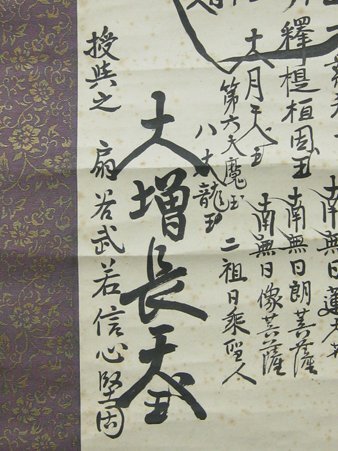 南無日蓮大
南無日朗菩薩
南無日像菩薩
釋提桓因王
大月天王
第六天魔王
八大龍王
二祖日乘聖人
大增長天王
授與之
扇若武若信心堅固